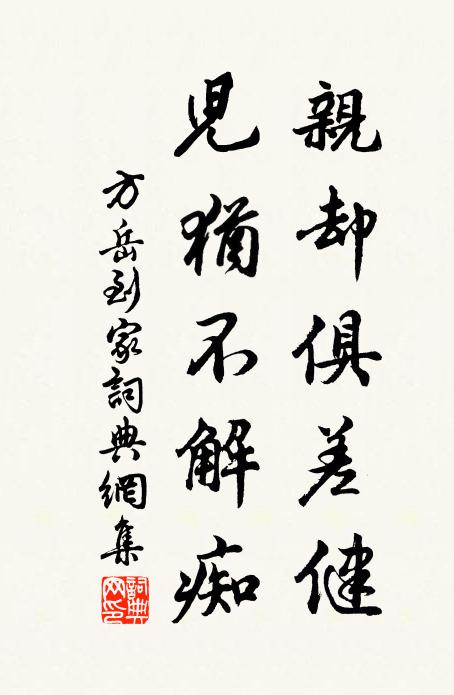 親却俱差健
兒猶不解痴
方岳到家詞典網集
詞典網印